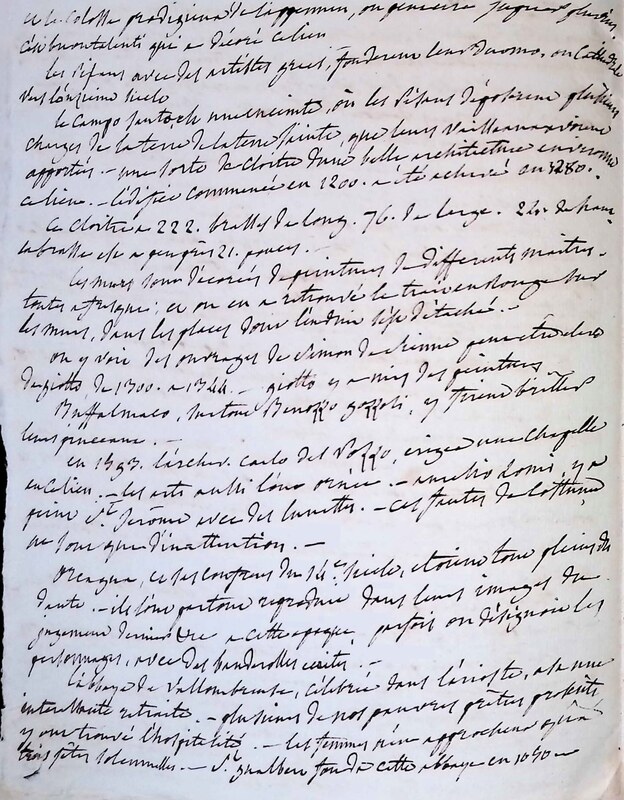 et le colosse prodigieux de l'appennin, on
c'est buontalenti qui a décoré ce lieu
les pisans avec des artistes grecs, fonderent leur duomo, ou Cathédrale
vers l'onzieme siecle
le Campo santo, est une enceinte, où les Pisans déposerent plusieurs
charges de la terre de la terre sainte, que leurs vaisseaux avoient
apportés. - une sorte de Cloître d'une belle architecture environne
ce lieu. - l'édifice commencé en 1200. a été achevé en 1280.
Ce Cloître a 222. brasses de long. 76. de large. 24. de haut
la brasse est a peu près 21. pouces. -
les murs sont décorés de peintures de différents maîtres -
toutes a fresque; et on en a retrouvé le trait en rouge sur
les murs, dans les places dont l'enduit s'est détaché. -
on y voit des ouvrages de Simon de Sienne peut être eleve
de giotto de 1300. a 1344. - giotto y a mis des peintures -
Buffalmaco, surtout Benozzo gozzoli, y firent briller
leurs pinceaux. -
en 1593. l'archev. Carlo del Pozzo, erigea une chapelle
en ce lieu. - les arts aussi l'ont ornée. - aurelio Lomi, y a
peint St. Jerôme avec des lunettes. - ces fautes de Costume
ne sont que d'inattention. -
Orcagna, et ses confreres du 14e. siecle, etoient tout pleins du
dante. - ils l'ont partout reproduit dans leurs images du
jugement dernier a cette epoque, parfois on désignoit les
personnages, avec des banderolles ecrites. -
l'abbaye de Vallombreuse, célébrée dans l'arioste, est une
interessante retraite. - plusieurs de nos pauvres prêtres proscrits
y ont trouvé l'hospitalité. - les femmes n'en approchent qu'a
trois fêtes solennelles. - St. gualbert fonda cette abbaye en 1040 -